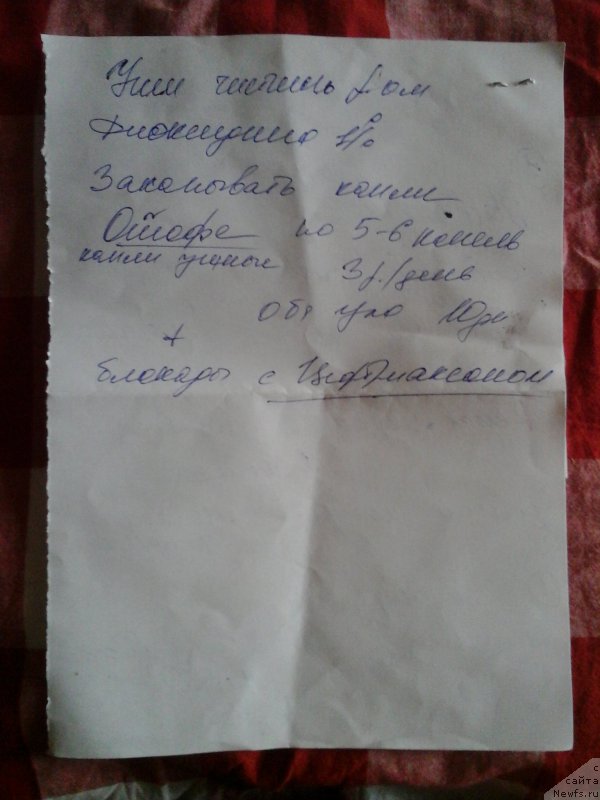 Уши чистить
Диоксидин 1%
Закапывать капли
Отофа по 5-6 капель
капли ушные 3 р./день
Обр ухо 10дн
+
блокады с Цефтриаксоном
с
сайта
Newfs.ru